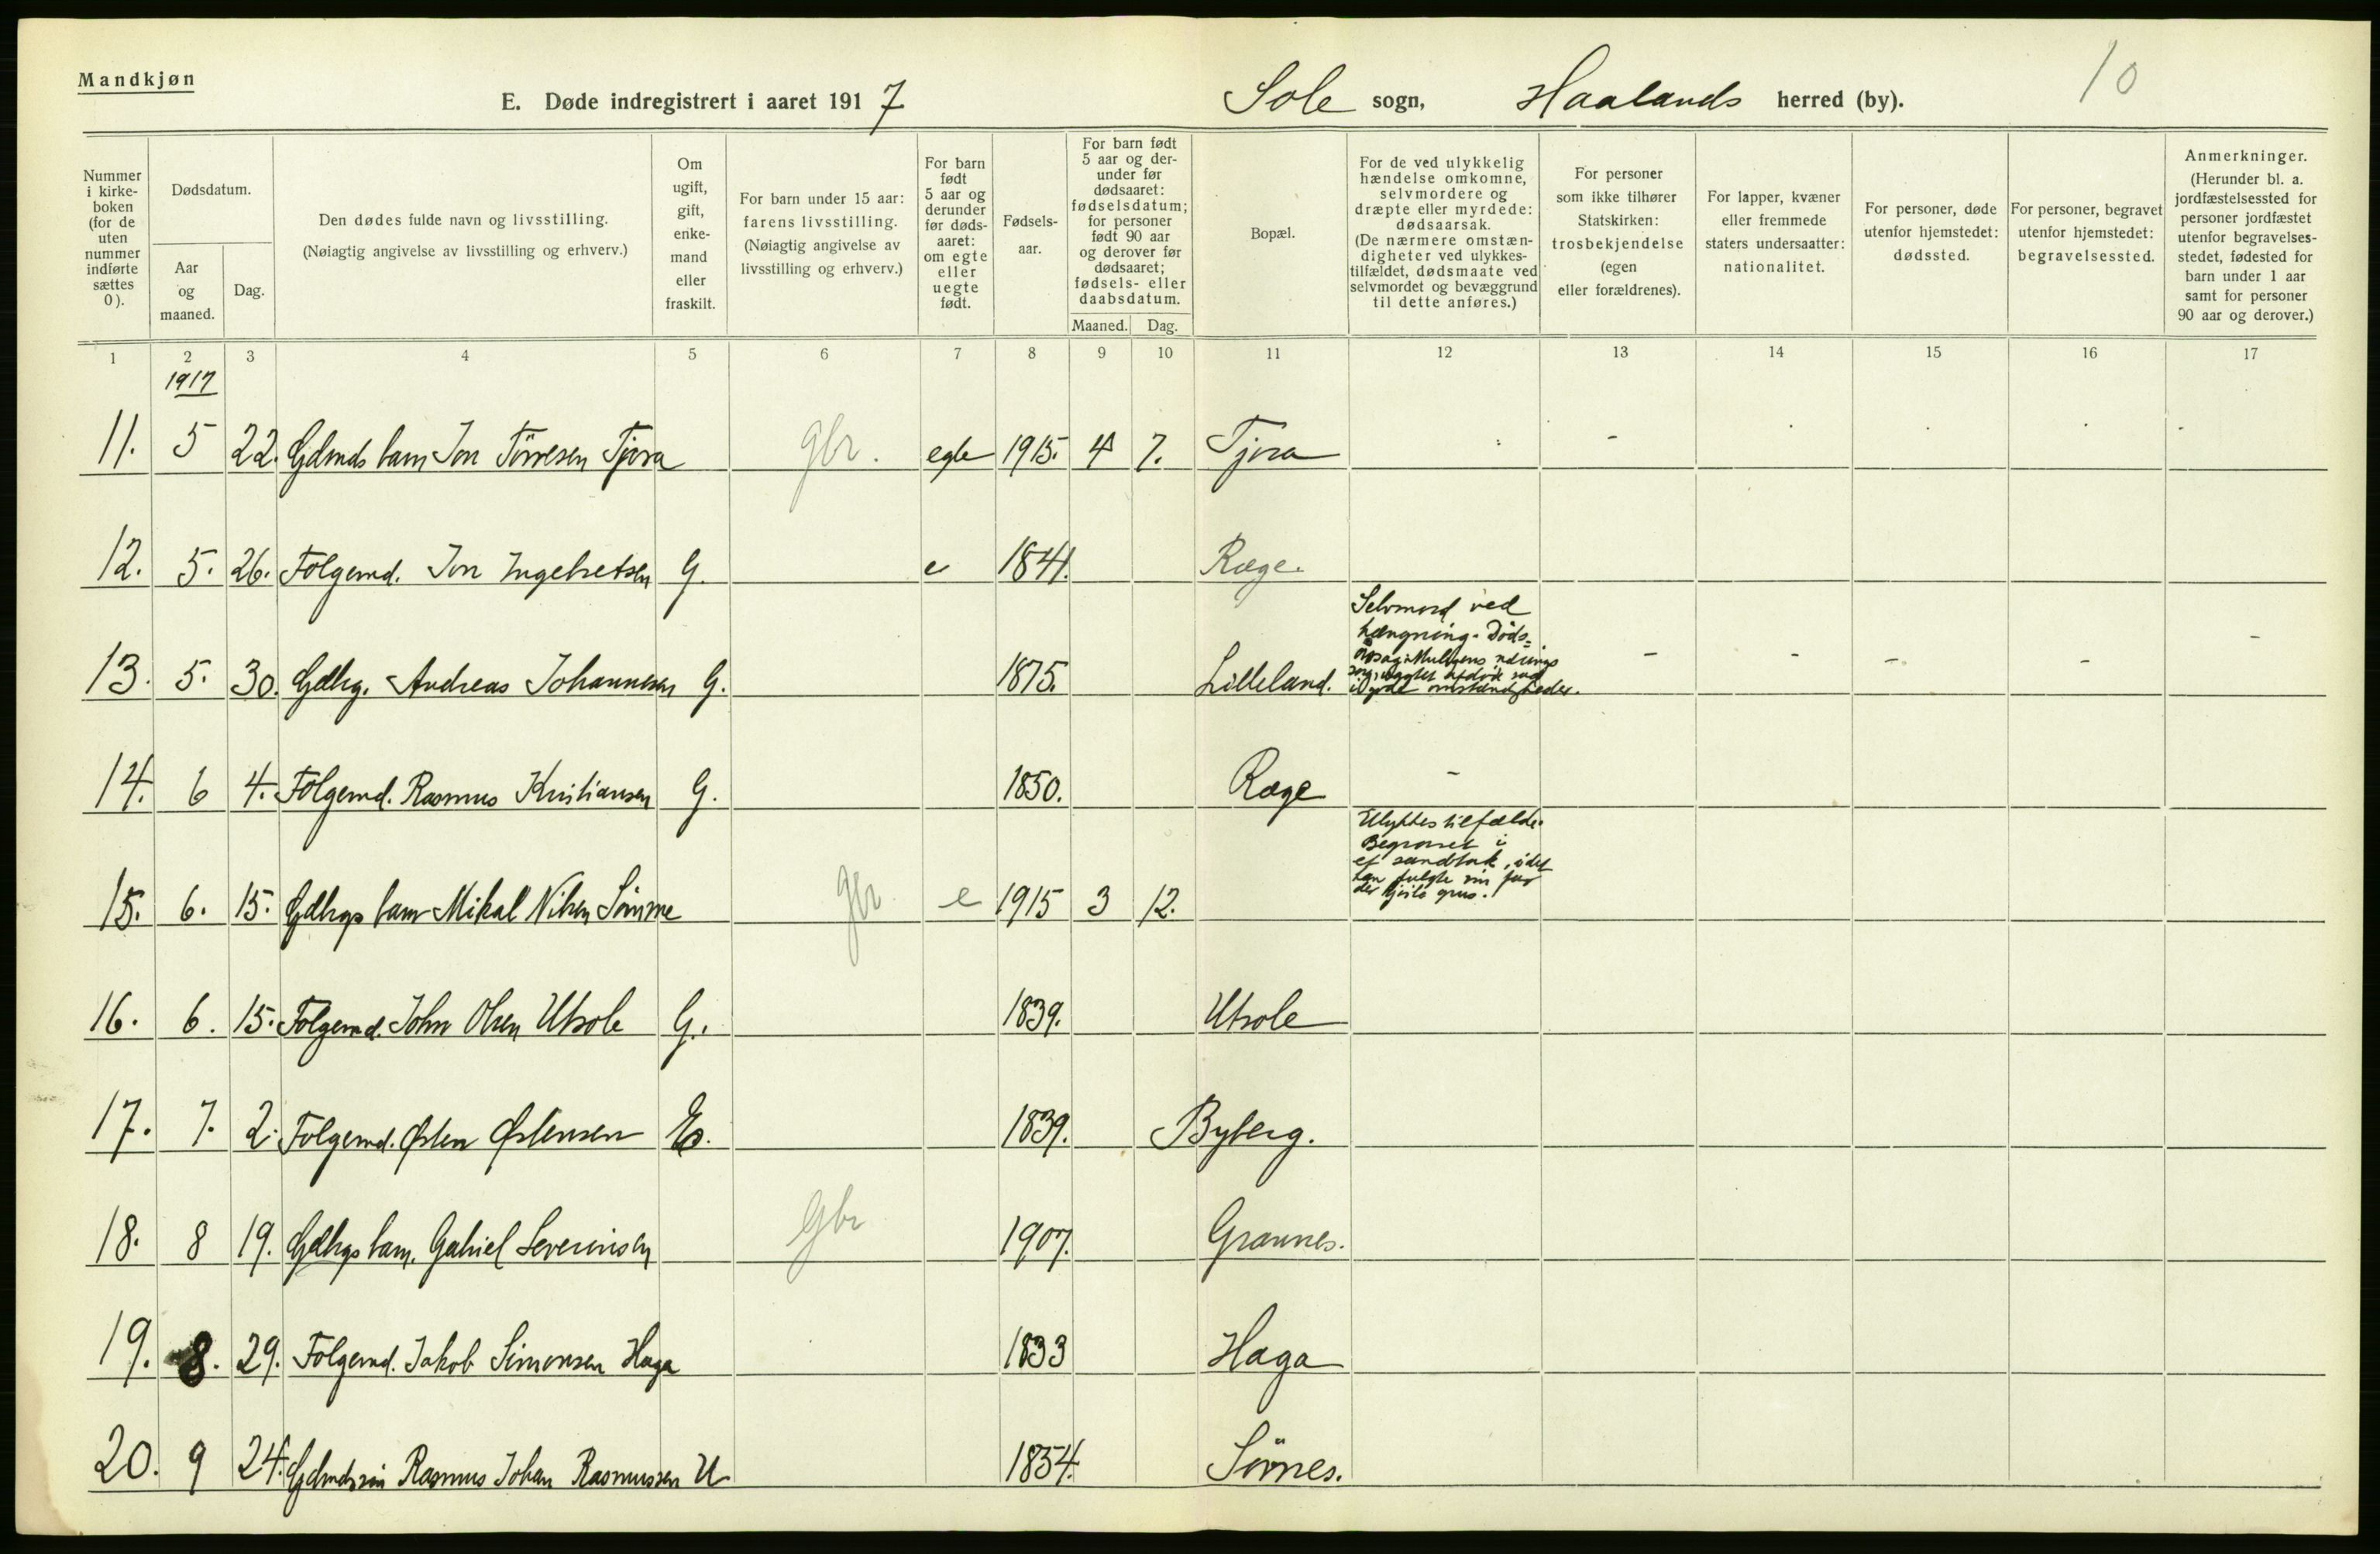 Mandkjøn
E. Døde indregistrert i aaret 1917 Sole sogn, Haalands herred (by). 10
Nummer
i kirke-
boken
(for de
uten
nummer
indførte
sættes
0).
Dødsdatum.
Aar
og
maaned.
Dag.
Den dødes fulde navn og livsstilling.
(Nøiagtig angivelse av livsstilling og erhverv.)
Om
ugift,
gift,
enke-
mand
eller
fraskilt.
For barn under 15 aar:
farens livsstilling.
(Nøiagtig angivelse av
livsstilling og erhverv.)
For barn
født
5 aar og
derunder
før døds-
aaret:
om egte
eller
uegte
født.
Fødsels-
aar.
For barn født
5 aar og der-
under før
dødsaaret:
fødselsdatum;
for personer
født 90 aar
og derover før
dødsaaret;
fødsels- eller
daabsdatum.
Maaned. Dag.
Bopæl.
For de ved ulykkelig
hændelse omkomne,
selvmordere og
dræpte eller myrdede:
dødsaarsak.
(De nærmere omstæn-
digheter ved ulykkes-
tilfældet, dødsmaate ved
selvmordet og bevæggrund
til dette anføres.)
For personer
som ikke tilhører
Statskirken:
trosbekjendelse
(egen
eller forældrenes).
For lapper, kvæner
eller fremmede
staters undersaatter:
nationalitet.
For personer, døde
utenfor hjemstedet:
dødssted.
For personer, begravet
utenfor hjemstedet:
begravelsessted.
Anmerkninger.
(Herunder bl. a.
jordfæstelsessted for
personer jordfæstet
utenfor begravelses-
stedet, fødested for
barn under 1 aar
samt for personer
90 aar og derover.)
1 2 3 4 5 6 7 8 9 10 11 12 13 14 15 16 17
1917
11. 5 22. Gdmds barn Jon Törresen Tjora gbr. egte 1915. 4 7. Tjora
12. 5. 26. Folgemd. Jon Ingebretsen G. e 1841. Ræge.
Selvmord ved
hængning. Döds-
13. 5. 30. Gdbrg. Andreas Johannesen G. 1875. Lilleland.
omstændigheder.
14. 6 4. Folgemd. Rasmus Kristiansen G. 1850. Ræge
Ulykkestilfælde.
Begravet i
et sandtak, idet
han fulgte sin far
der grus.
15. 6. 15. Gdbrgs barn Mikal Nilsen Sömme gbr e 1915 3 12.
16. 6. 15. Folgemd. John Olsen Utsole G. 1839. Utsole
17. 7. 2. Folgemd. Østen Østensen E. 1839. Byberg.
18. 8 19. Gdbrgs barn. Gabriel Severinsen Gbr 1907. Grannes.
19. 8. 29. Folgemd. Jakob Simonsen Haga 1833 Haga
20. 9 24. Rasmus Johan Rasmussen U 1854. Sörnes.